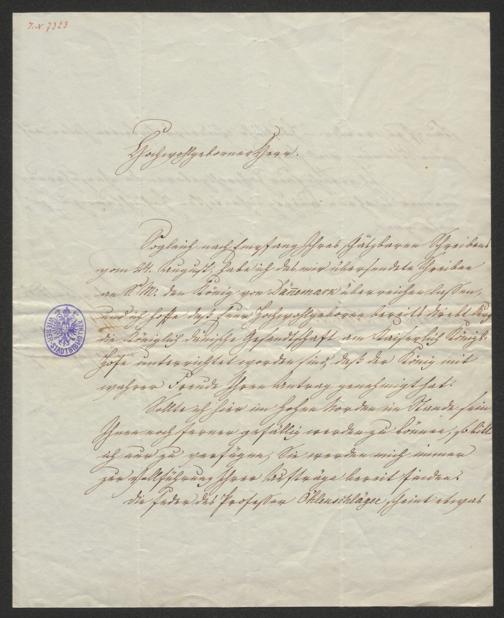 J. N. 7323
Hochwohlgeborner Herr.
Sogleich nach Empfang Ihres schätzbaren Schreibens
vom 24. August, habe ich das mir übersendete Schreiben
an S. M. den König von Dänemark überreichen lassen,
und ich hoffe daß Euer Hochwohlgeboren bereits durch
die Königlich dänische Gesandtschaft am Kaiserlich Königl.
Hofe unterrichtet worden sind, daß der König mit
wahrer Freude Ihren Antrag genehmigt hat.
Sollte ich hier im hohen Norden im Stande sein
Ihnen noch ferner gefällig werden zu können, so bitte
ich nur zu verfügen, Sie werden mich immer
zur Vollführung Ihrer Aufträge bereit finden.
Die Feder des Professor Öhlenschläger, scheint etwas